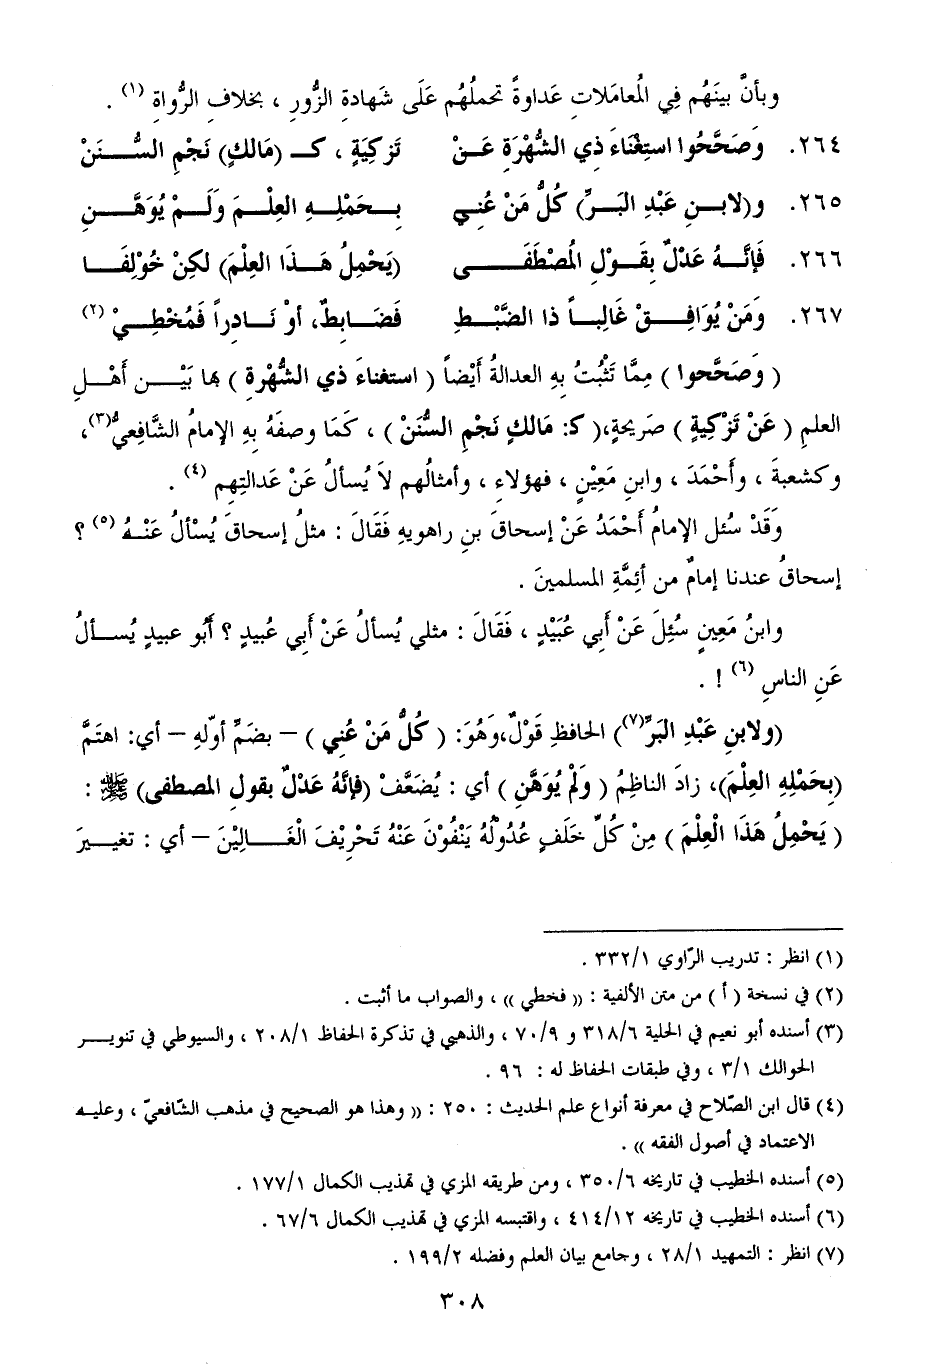 وبأنَّ بينَهُم فِي الْمُعاملاتِ عَداوةً تحملُهُم عَلَى شَهادةِ الزُّورِ ، بخلافِ الرُّواةِ (١) .
٢٦٤. وَصَحَّحُوا اسْتِغْنَاءَ ذِي الشُّهْرَةِ عَنْ تَزْكِيَةٍ ، كـ (مَالكٍ) نَجْمِ السُّنَنْ
٢٦٥. و(لابنِ عَبْدِ البَرِّ) كُلُّ مَنْ عُنِي بِحَمْلِهِ العِلْمَ وَلَمْ يُوَهَّنِ
٢٦٦. فَإِنَّهُ عَدْلٌ بِقَوْلِ الْمُصْطَفَى (يَحْمِلُ هَذَا العِلْمَ) لكِنْ خُوْلِفَا
٢٦٧. وَمَنْ يُوَافِقْ غَالِباً ذا الضَّبْطِ فَضَابِطٌ، أوْ نَادِراً فَمُخْطِيْ (٢)
( وَصَحَّحوا ) مِمَّا تَثْبُتُ بِهِ العدالةُ أَيْضاً ( استغناءَ ذي الشُّهْرةِ ) بها بَيْنَ أَهْلِ
العلمِ ( عَنْ تَزْكِيةٍ ) صَريحةٍ،( كـ: مَالكٍ نَجْمِ السُّنَنْ ) ، كَمَا وصفَهُ بِهِ الإمامُ الشَّافِعيُّ(٣)،
وكشعبةَ ، وأَحْمَدَ ، وابنِ مَعِيْنٍ ، فهؤلاءِ ، وأمثالُهم لاَ يُسألُ عَنْ عدالتِهم (٤) .
وَقَدْ سُئل الإمامُ أَحْمَدُ عَنْ إسحاقَ بنِ راهويهِ فَقَالَ : مثلُ إسحاقَ يُسْألُ عَنْهُ (٥) ؟
إسحاقُ عندنا إمامٌ من أئِمَّةِ المسلمينَ .
وابنُ مَعِينٍ سُئِلَ عَنْ أبي عُبَيْدٍ ، فَقَالَ : مثلي يُسألُ عَنْ أبي عُبيدٍ ؟ أَبُو عبيدٍ يُسألُ
عَنِ الناسِ (٦) ! .
(ولابنِ عَبْدِ البَرِّ(٧)) الحافظِ قَوْلٌ،وَهُوَ: ( كُلُّ مَنْ عُنِي ) – بضمِّ أوّلهِ – أي: اهتمَّ
(بِحَمْلِهِ العِلْمَ)، زادَ الناظِمُ ( وَلَمْ يُوهَّنِ ) أي : يُضعَّفْ (فإنَّهُ عَدْلٌ بقولِ المصطفى) ﷺ :
( يَحْمِلُ هَذَا الْعِلْمَ ) مِنْ كُلِّ خلَفٍ عُدُولُهُ يَنْفُوْنَ عَنْهُ تَحْرِيْفَ الْغَالِيْنَ – أي : تغييرَ
(١) انظر : تدريب الرّاوي ٣٣٢/١ .
(٢) في نسخة ( أ ) من متن الألفية : « فخطي » ، والصواب ما أثبت .
(٣) أسنده أبو نعيم في الحلية ٣١٨/٦ و ٧٠/٩ ، والذهبي في تذكرة الحفاظ ٢٠٨/١ ، والسيوطي في تنوير
الحوالك ٣/١ ، وفي طبقات الحفاظ له : ٩٦ .
(٤) قال ابن الصّلاح في معرفة أنواع علم الحديث : ٢٥٠ : « وهذا هو الصحيح في مذهب الشّافعيّ ، وعليه
الاعتماد في أصول الفقه » .
(٥) أسنده الخطيب في تاريخه ٣٥٠/٦ ، ومن طريقه المزي في تهذيب الكمال ١٧٧/١ .
(٦) أسنده الخطيب في تاريخه ٤١٤/١٢ ، واقتبسه المزي في تهذيب الكمال ٦٧/٦ .
(٧) انظر : التمهيد ٢٨/١ ، وجامع بيان العلم وفضله ١٩٩/٢ .
٣٠٨